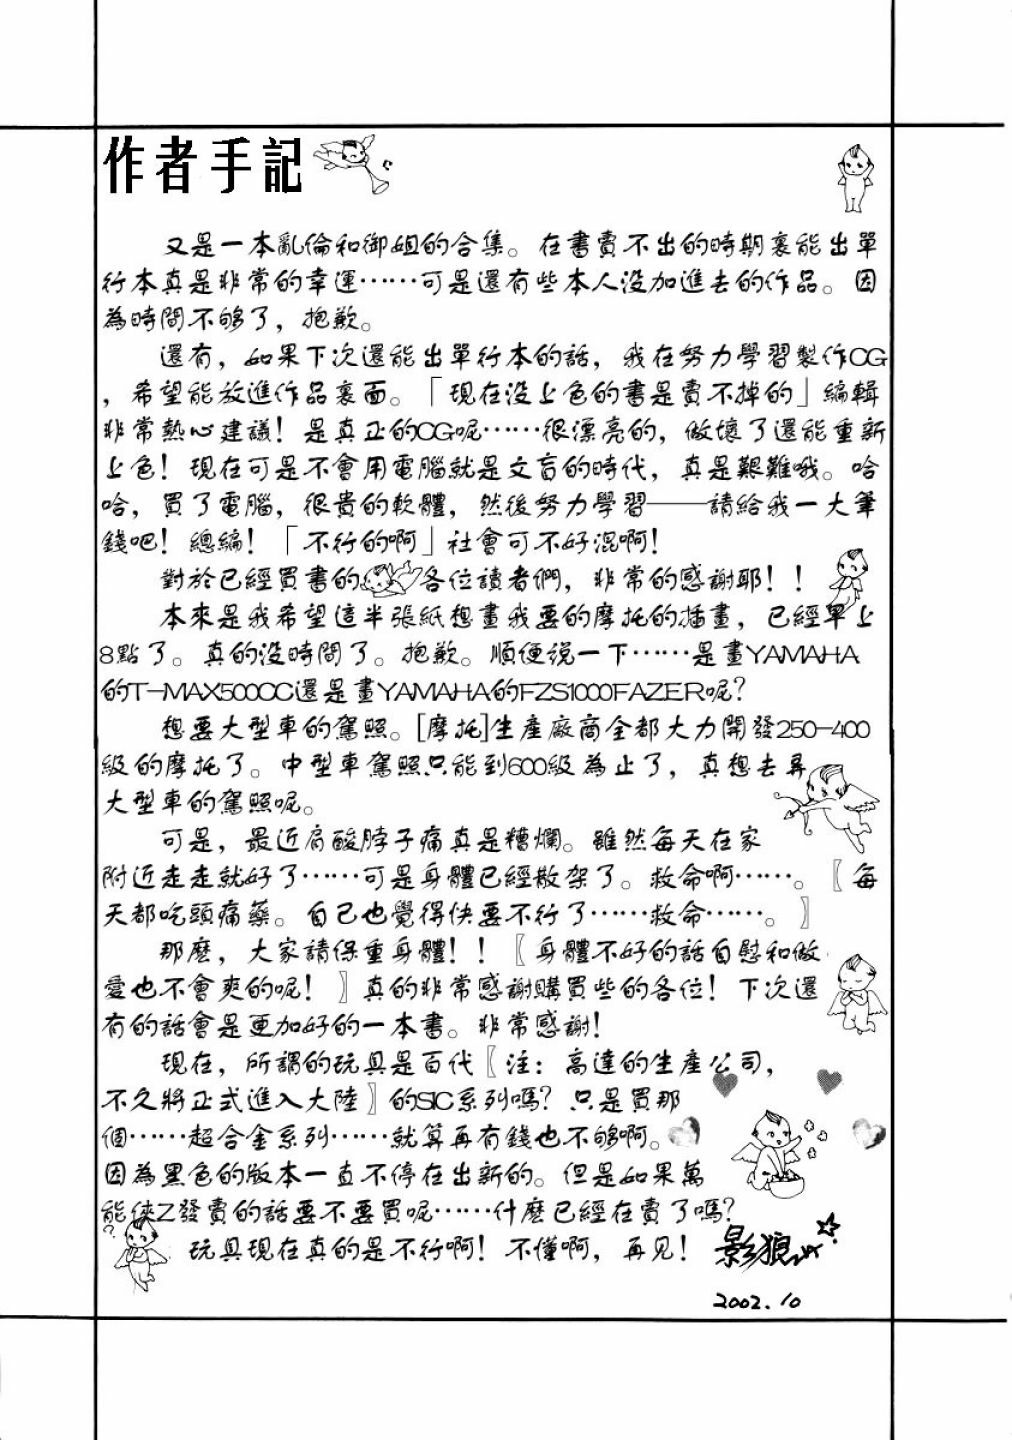 作者手記
又是一本亂倫和御姐的合集。在書賣不出的時期裏能出單
行本真是非常的幸運……可是還有些本人没加進去的作品。因
為時間不够了，抱歉。
還有，如果下次還能出單行本的話，我在努力學習製作CG
，希望能放進作品裏面。「現在没上色的書是賣不掉的」編輯
非常熱心建議！是真正的CG呢……很漂亮的，做壞了還能重新
上色！現在可是不會用電腦就是文盲的時代，真是艱難哦。哈
哈，買了電腦，很貴的軟體，然後努力學習——請給我一大筆
錢吧！總編！「不行的啊」社會可不好混啊！
對於已經買書的各位讀者們，非常的感謝耶！！
本來是我希望這半張紙想畫我要的摩托的插畫，已經早上
8點了。真的没時間了。抱歉。順便説一下……是畫YAMAHA
的T-MAX500CC還是畫YAMAHA的FZS1000FAZER呢？
想要大型車的駕照。[摩托]生產廠商全都大力開發250-400
級的摩托了。中型車駕照只能到600級為止了，真想去弄
大型車的駕照呢。
可是，最近肩酸脖子痛真是糟爛。雖然每天在家
附近走走就好了……可是身體已經散架了。救命啊……。〖每
天都吃頭痛藥。自己也覺得快要不行了……救命……。〗
那麽，大家請保重身體！！〖身體不好的話自慰和做
愛也不會爽的呢！〗真的非常感謝購買些的各位！下次還
有的話會是更加好的一本書。非常感謝！
現在，所謂的玩具是百代〖注：高達的生產公司，
不久將正式進入大陸〗的SIC系列嗎？只是買那
個……超合金系列……就算再有錢也不够啊。
因為黑色的版本一直不停在出新的。但是如果萬
能俠Z發賣的話要不要買呢……什麽已經在賣了嗎？
玩具現在真的是不行啊！不懂啊，再見！
影狼
2002.10